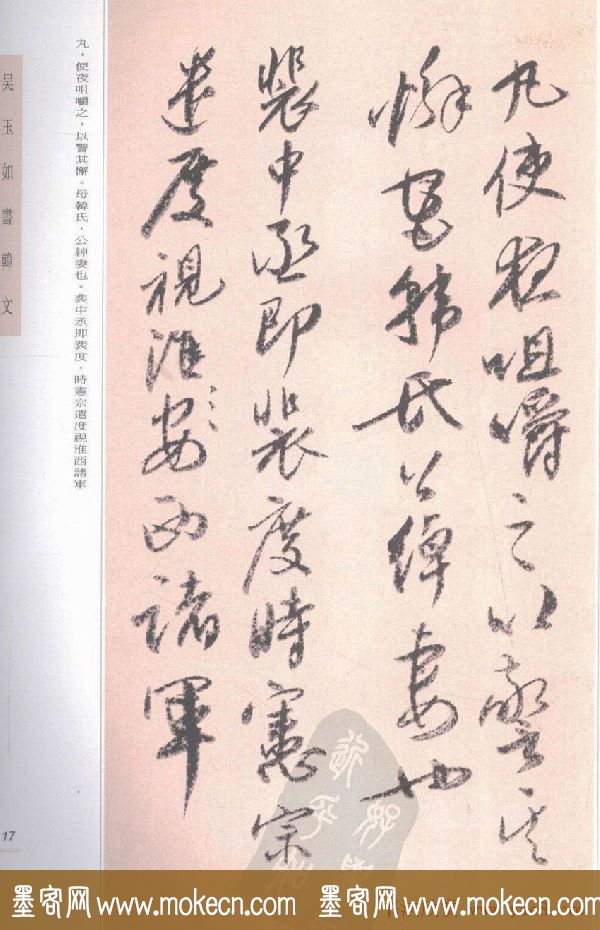 丸使夜咀嚼之以警其
懈母韓氏公綽妻也
裴中丞即裴度時憲宗
遣度視淮安西諸軍
丸，使夜咀嚼之，以警其懈。母韓氏，公綽妻也。裴中丞即裴度，時憲宗遣度視淮西諸軍
吳玉如書韓文
17
墨客网 www.mokecn.com 墨客网 www.mokecn.com